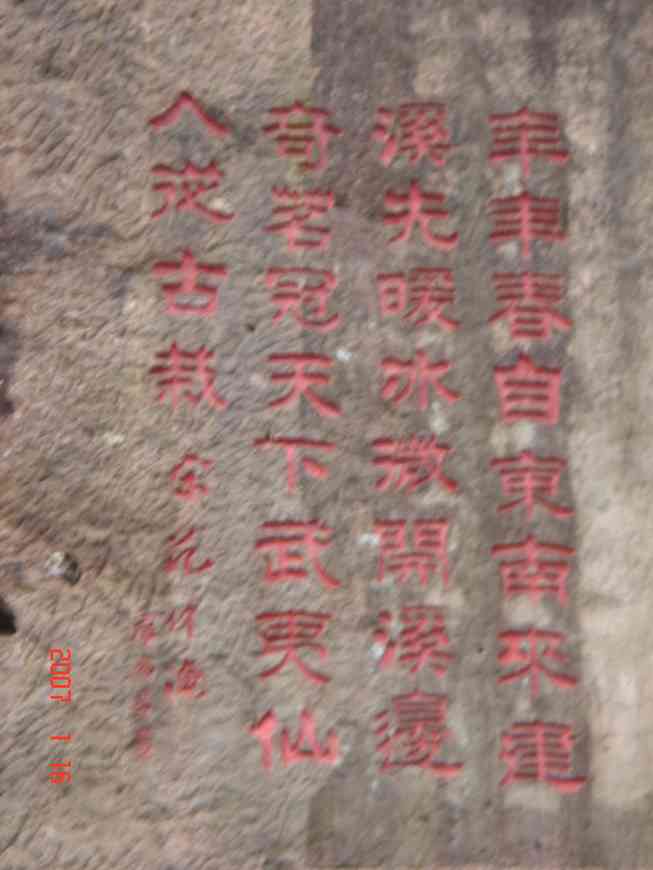 年年春自東南來建
溪先暖冰微開溪邊
奇茗冠天下武夷仙
人從古栽
宋范仲淹
2007 1 16